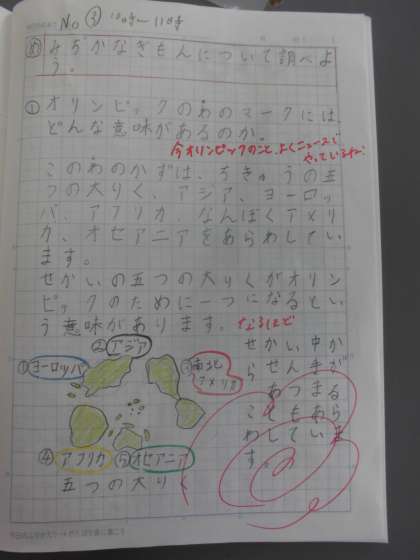 No ③ 10時〜11時
め みぢかなぎもんについて調べよ
う。
① オリンピックのわのマークには、
どんな意味があるのか。
今オリンピックのこと、よくニュースで
やっているね。
このわのかずは、ちきゅうの五
つの大りく、アジア、ヨーロッ
パ、アフリカ、なんぼくアメリ
カ、オセアニアをあらわしてい
ます。
せかいの五つの大りくがオリン
ピックのために一つになるとい
う意味があります。
なるほど
せかい中か
らせん手が
あつまる
こともあら
わしていま
す。
②アジア
①ヨーロッパ
③南北
アメリカ
④アフリカ
⑤オセアニア
五つの大りく